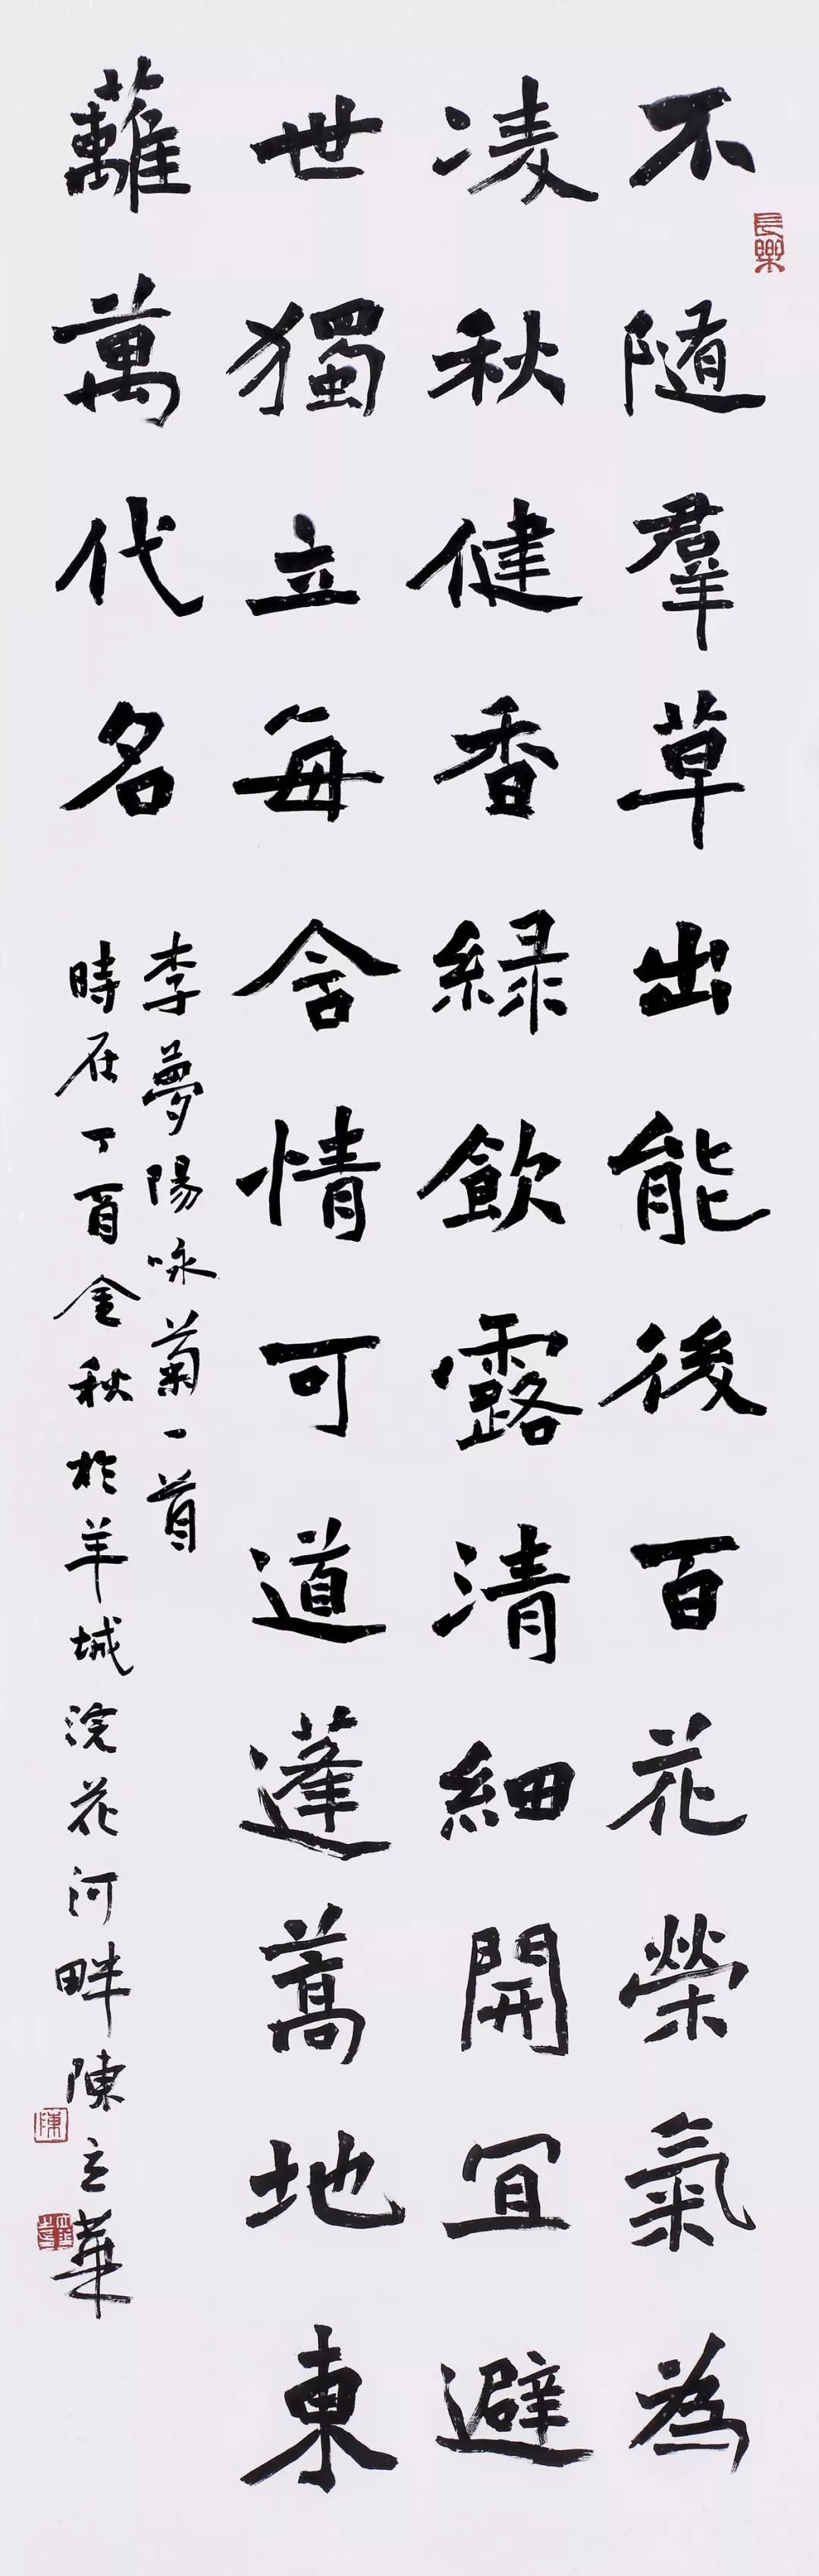 長樂
不随羣草出能後百花榮氣為
凌秋健香緑飲露清細開冝避
世獨立每含情可道蓬蒿地東
蘺萬代名
李夢陽咏菊一首
時在丁酉金秋於羊城浣花河畔陳立華
陳